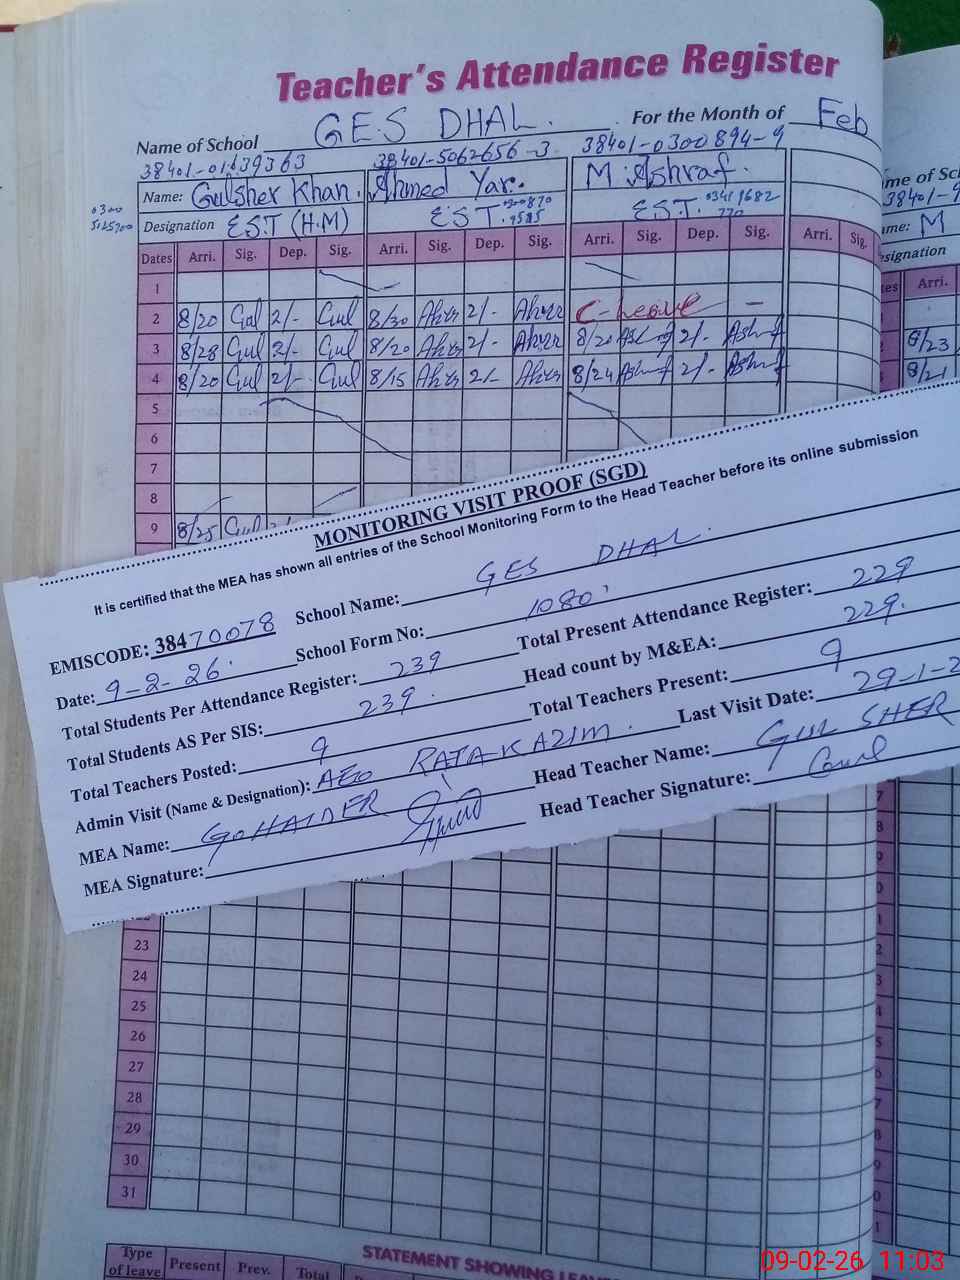 Teacher's Attendance Register
Name of School GES DHAL. For the Month of Feb
38401-5062656-3 38401-0300894-9
Name: Gulsher Khan. Ahmed Yar. M. Ashraf.
Designation EST (H.M) EST. EST.
Dates Arri. Sig. Dep. Sig. Arri. Sig. Dep. Sig. Arri. Sig. Dep. Sig. Arri. Sig.
1
2 8/20 Gul 2/- Gul 8/30 2/- C-Leave -
3 8/28 Gul 2/- Gul 8/20 2/- 8/20 Ashraf 2/- Ashraf
4 8/20 Gul 2/- Gul 8/15 2/- 8/24 Ashraf 2/- Ashraf
5
6
7
8
9 8/25 Gul
me of Sc
38401-9
ame: M
esignation
tes Arri.
8/23
8/21
MONITORING VISIT PROOF (SGD)
It is certified that the MEA has shown all entries of the School Monitoring Form to the Head Teacher before its online submission
EMISCODE: 38470078 School Name: GES DHAL.
Date: 9-2-26. School Form No: 1080
Total Students Per Attendance Register: 239 Total Present Attendance Register: 229
Total Students AS Per SIS: 239. Head count by M&EA: 229.
Total Teachers Posted: 9 Total Teachers Present: 9
Admin Visit (Name & Designation): AEO KAZIM. Last Visit Date: 29-1-2
MEA Name: HAIDER Head Teacher Name: GUL SHER
MEA Signature: Head Teacher Signature: Gul
23
24
25
26
27
28
29
30
31
Type of leave Present Prev. Total
STATEMENT SHOWING LEAV
09-02-26 11:03